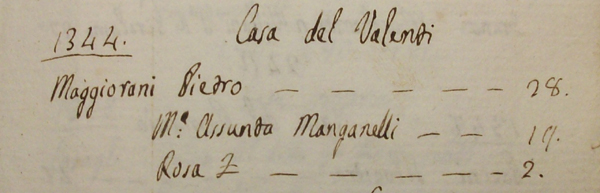 1344. Casa del Valenti
Maggiorani Pietro — — — — — 28.
Mª. Assunta Manganelli — — 19.
Rosa F — — — — — 2.